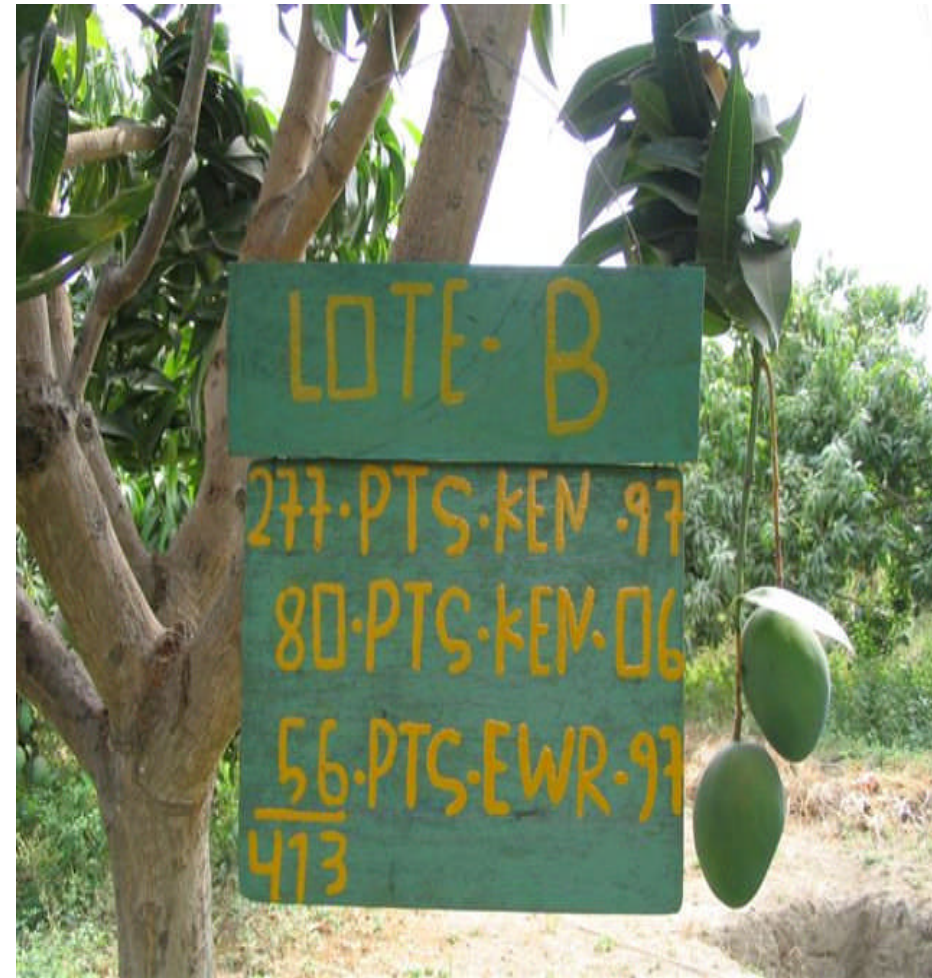 LOTE- B
277·PTS·KEN·97
80·PTS·KEN·06
56·PTS·EWR·97
413